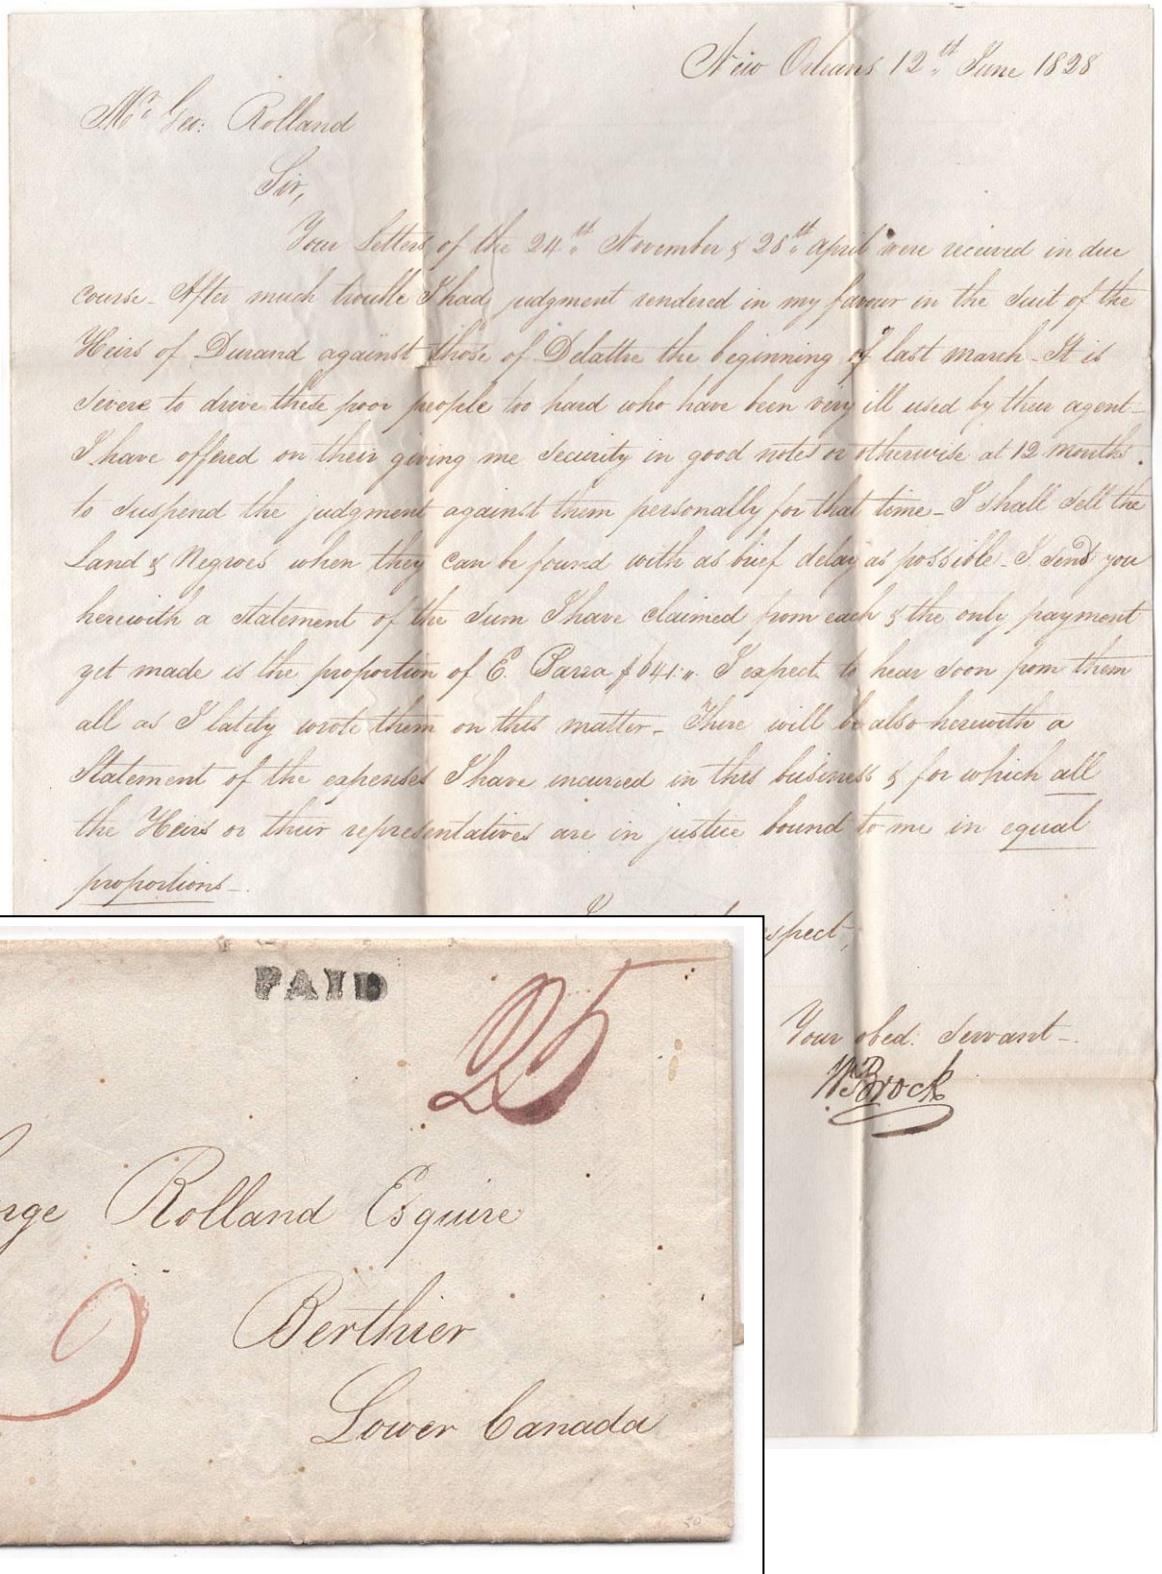 New Orleans 12th June 1828
Mr. Geo: Rolland
Sir,
Your Letters of the 24th November & 28th april were received in due
course - After much trouble I had judgment rendered in my favour in the suit of the
Heirs of Durand against those of Delattre the beginning of last march - It is
severe to drive these poor people too hard who have been very ill used by their agent -
I have offered on their giving me Security in good notes or otherwise at 12 months
to suspend the judgment against them personally for that time - I shall sell the
Land & Negroes when they can be found with as brief delay as possible - I send you
herewith a statement of the sum I have claimed from each & the only payment
yet made is the proportion of E. Parra $641 ". I expect to hear soon from them
all as I lately wrote them on this matter - There will be also herewith a
Statement of the expenses I have incurred in this business & for which all
the Heirs or their representatives are in justice bound to me in equal
proportions -
spect,
Your obed: Servant -
Wm Brock
PAID
25
rge Rolland Esquire
Berthier
Lower Canada
50